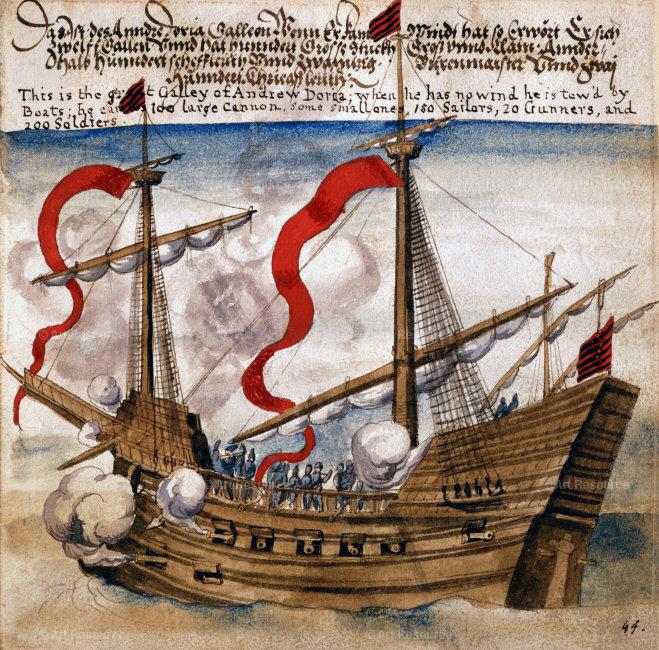 Das ist des Anndre Doria Galleon Wenn Er kain Windt hat so Erwört Er sich
zwelff Galleen Unnd hat hunndert Grosse Stuckh Gros unnd klain Annder-
halb hunndert scheffleuth Unnd zwainzig Buxenmaister Unnd zwaj
hunndert
This is the great Galley of Andrew Doria; when he has no wind he is tow'd by
Boats; he 100 large Cannon, some small ones, 150 Sailors, 20 Gunners, and
200 Soldiers
Art Resource
Art Resource
Art Resource
44.